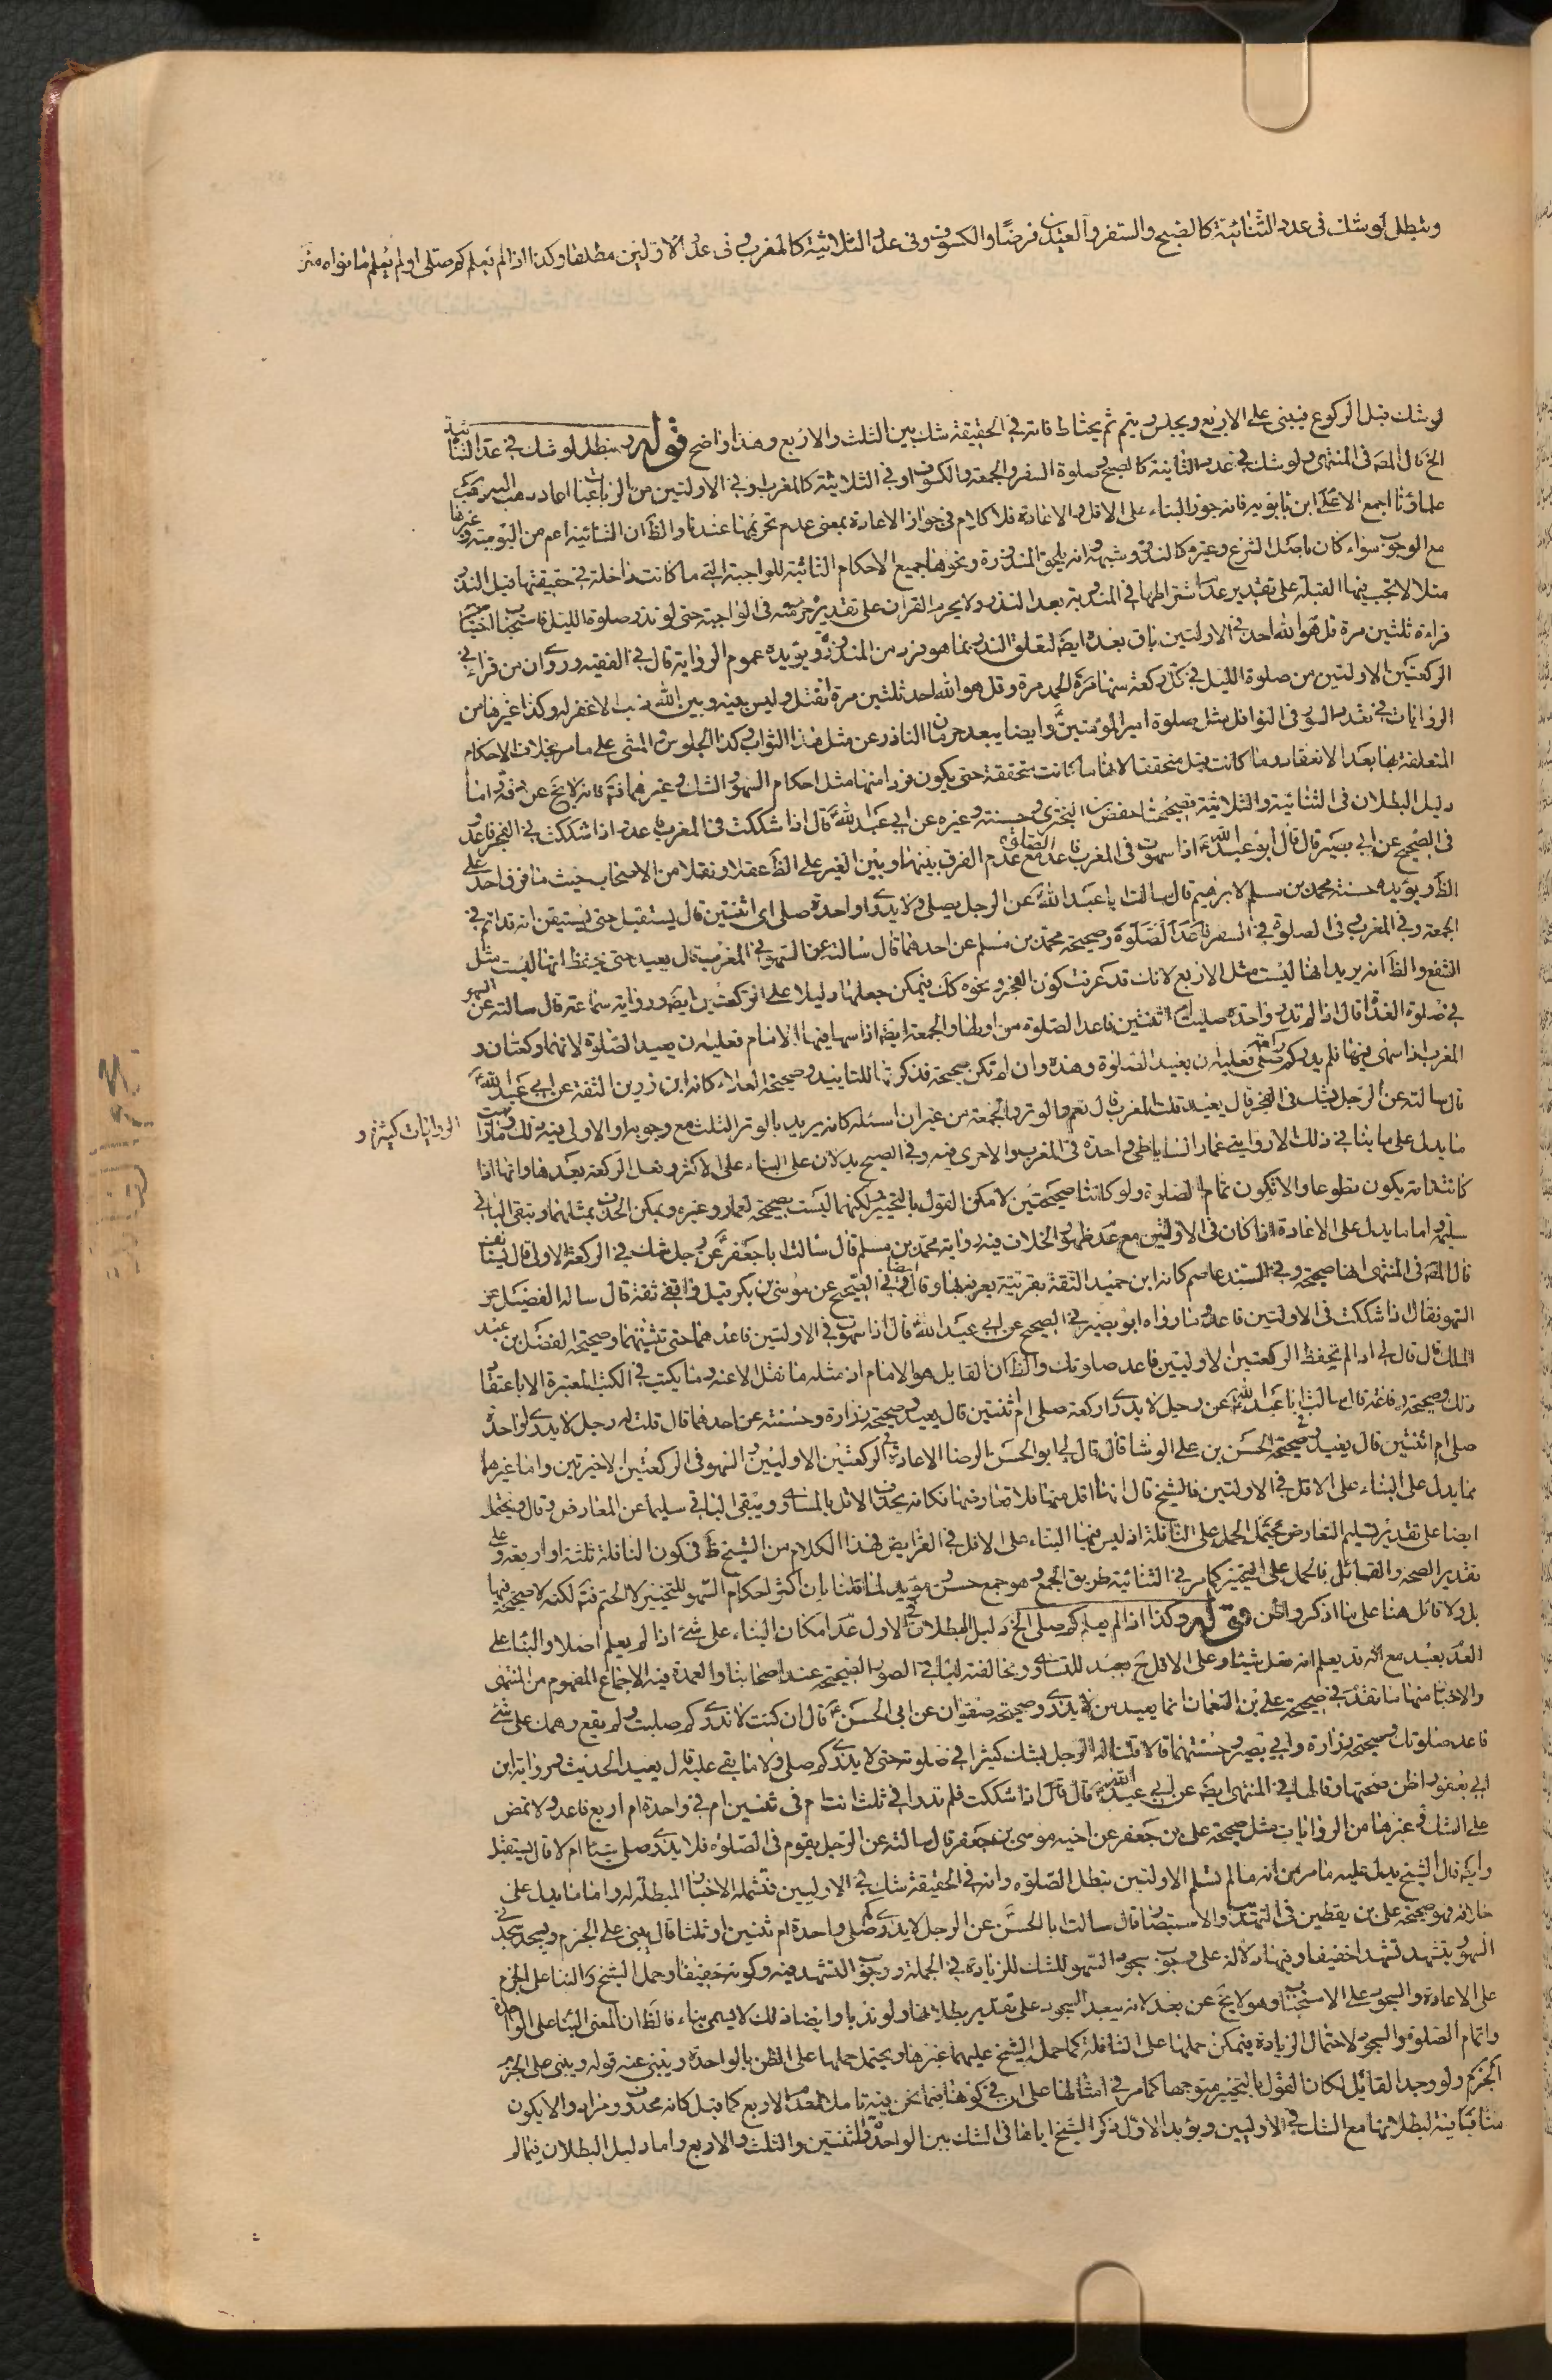 وتبطل لو شك فى عدد الثنائية كالصبح والسفر والعيدين فرضا والكسوف وفى عدد الثلاثية كالمغرب وفى عدد الاولتين مطلقا وكذا اذا لم يعلم كم صلى او لم يعلم ما نواه
لو شك قبل الركوع فيبنى على الاربع ويجلس ويتم ثم يحتاط فانه فى الحقيقة شك بين الثلث والاربع وهذا واضح قوله وتبطل لو شك فى عدد الثنائية
الخ قال المص فى المنتهى ولو شك فى عدد الثنائية كالصبح وصلوة السفر والجمعة والكسوف او فى الثلاثية كالمغرب او فى الاولتين من الرباعيات اعاد ذهب اليه
علماؤنا اجمع الا على ابن بابويه فانه جوز البناء على الاقل والاعادة فلا كلام فى جواز الاعادة بمعنى عدم تحريمها عندنا والظ ان الثنائية اعم من اليومية وغيرها
مع الوجوب سواء كان باصل الشرع وغيره كالنذر وشبهه وانه يلحق المنذورة ونحوها جميع الاحكام الثابتة للواجبة التى ما كانت داخلة فى حقيقتها قبل النذر
مثلا لا تجب فيها القبلة على تقدير عدم اشتراطها فى المندوبة بعد النذر ولا يحرم القران على تقدير حرمته فى الواجبة حتى لو نذر صلوة الليل فاستحباب
قراءة ثلثين مرة قل هو الله احد فى الاولتين باق بعده ايضا لتعلق النذر بما هو فرد من المنذور ويؤيده عموم الرواية قال فى الفقيه وروى ان من قرأ فى
الركعتين الاولتين من صلوة الليل فى كل ركعة منها مرة الحمد مرة وقل هو الله احد ثلثين مرة انفتل وليس بينه وبين الله ذنب الا غفر له وكذا غيرها من
الروايات فى تعدد السور فى النوافل مثل صلوة امير المؤمنين وايضا يبعد حرمان الناذر عن مثل هذا الثواب وكذا الجلوس والمشى على ما مر بخلاف الاحكام
المتعلقة بها بعد الانعقاد وما كانت قبل متحققة لانها ما كانت متحققة حتى يكون فردا منها مثل احكام السهو والشك وغيرهما فتم فانه لا يخ عن دقة واما
دليل البطلان فى الثنائية والثلاثية فصحيحة حفص بن البخترى وحسنته وغيره عن ابى عبد الله قال اذا شككت فى المغرب فاعد واذا شككت فى الفجر فاعد و
فى الصحيح عن ابى بصير قال قال ابو عبد الله اذا سهوت فى المغرب فاعد الصلوة مع عدم الفرق بينها وبين الغير على الظ عقلا ونقلا من الاصحاب حيث ما فرق احد على
الظ ويؤيده حسنة محمد بن مسلم لابرهيم قال سالت ابا عبد الله عن الرجل يصلى ولا يدرى واحدة صلى ام اثنتين قال يستقبل حتى يستيقن انه قد اتم فى
الجمعة وفى المغرب وفى الصلوة فى السفر فاعد الصلوة وصحيحة محمد بن مسلم عن احدهما قال سالته عن السهو فى المغرب قال يعيد حتى يحفظ انها ليست مثل
الشفع والظ انه يريد انها ليست مثل الاربع لانك قد عرفت كون الفجر ونحوه كك فيمكن جعلها دليلا على الركعتين ايضا ورواية سماعة قال سالته عن السهو
فى صلوة الغداة قال اذا لم تدر واحدة صليت ام ثنتين فاعد الصلوة من اولها والجمعة ايضا اذا سها فيها الامام فعليه ان يعيد الصلوة لانها ركعتان و
المغرب اذا سهى فيها فلم يدر كم ركعة صلى فعليه ان يعيد الصلوة وهذه وان لم تكن صحيحة فذكرتها للتاييد وصحيحة العلاء كانه ابن رزين الثقة عن ابى عبد الله
قال سالته عن الرجل يشك فى الفجر قال يعيد قلت المغرب قال نعم والوتر والجمعة من غير ان اسئله كانه يريد بالوتر الثلث مع وجوبه او الاولى فيه ذلك وما رايت
الروايات كثيرة و
ما يدل على ما ينافى ذلك الا رواية عمار الساباطى واحدة فى المغرب والاخرى فيه وفى الصبح يدلان على البناء على الاكثر وفعل الركعة بعدها وانها اذا
كانت تامة يكون تطوعا والا تكون تمام الصلوة ولو كانتا صحيحتين لامكن القول بالتخيير لكنهما ليست بصحيحة لعمار وغيره ويمكن الحذف بمثلهما ويبقى الباقى
سليما واما ما يدل على الاعادة اذا كان فى الاولتين مع عدم ظهور الخلاف فيه رواية محمد بن مسلم قال سالت ابا جعفر عن رجل شك فى الركعة الاولى قال يستانف
قال المص فى المنتهى انها صحيحة وفى السند عاصم كانه ابن حميد الثقة بقرينة يعرفها وقال ايضا فى الصحيح عن موسى بن بكر قيل واقفى ثقة قال ساله الفضيل عن
السهو فقال اذا شككت فى الاولتين فاعد وما رواه ابو بصير فى الصحيح عن ابى عبد الله قال اذا سهوت فى الاولتين فاعدهما حتى تثبتهما وصحيحة الفضل بن عبد
الملك قال قال لى اذا لم تحفظ الركعتين الاوليين فاعد صلوتك والظ ان القايل هو الامام اذ مثله ما نقل الا عنه وما يكتب فى الكتب المعتبرة الا باعتقاد
ذلك وصحيحة رفاعة قال سالت ابا عبد الله عن رجل لا يدرى اركعة صلى ام ثنتين قال يعيد وصحيحة زرارة وحسنته عن احدهما قال قلت له رجل لا يدرى واحدة
صلى ام اثنتين قال يعيد وصحيحة الحسن بن على الوشا قال قال لى ابو الحسن الرضا الاعادة فى الركعتين الاوليين والسهو فى الركعتين الاخيرتين واما غيرها
مما يدل على البناء على الاقل فى الاولتين فالشيخ قال انها اقل منها فلا تعارضها فكانه يحذف الاقل بالمساوى ويبقى الباقى سليما عن المعارض وقال ويحتمل
ايضا على تقدير تسليم التعارض يحتمل الحمل على النافلة اذ ليس فيها البناء على الاقل فى الفرايض فهذا الكلام من الشيخ ظ فى كون النافلة ثلثة او اربعة وعلى
تقدير الصحة والقائل فالحمل على التخيير كما مر فى الثنائية طريق الجمع وهو جمع حسن مؤيد لما قلنا بان اكثر احكام السهو للتخيير لا الحتم فتم لكنه لا صحيحة فيها
بل ولا قائل هنا على ما اذكر واظن قوله وكذا اذا لم يعلم كم صلى الخ دليل البطلان فى الاول عدم امكان البناء على شئ اذا لم يعلم اصلا والبناء على
العدم بعيد مع انه قد يعلم انه فعل شيئا وعلى الاقل ح بعيد للتساوى ومخالفته لباقى الصور الصحيحة عند اصحابنا والعمدة فيه الاجماع المفهوم من المنتهى
والاخبار منها ما تقدم فى صحيحة على بن النعمان انما يعيد من لا يدرى وصحيحة صفوان عن ابى الحسن قال ان كنت لا تدرى كم صليت ولم يقع وهمك على شئ
فاعد صلوتك وصحيحة زرارة وابى بصير وحسنتهما قالا قلنا له الرجل يشك كثيرا فى صلوته حتى لا يدرى كم صلى ولا ما بقى عليه قال يعيد الحديث ورواية ابن
ابى يعفور اظن صحتها وقالها فى المنتهى ايضا عن ابى عبد الله قال قال اذا شككت فلم تدر افى ثلث انت ام فى ثنتين ام فى واحدة ام اربع فاعد ولا تمض
على الشك وغيرها من الروايات مثل صحيحة على بن جعفر عن اخيه موسى بن جعفر قال سالته عن الرجل يقوم فى الصلوة فلا يدرى صلى شيئا ام لا قال يستقبل
قال الشيخ يدل عليه ما مر من انه ما لم تسلم الاولتين تبطل الصلوة وانه فى الحقيقة شك فى الاوليين فتشمله الاخبار المبطلة له واما ما يدل على
خلافه فهو صحيحة على بن يقطين فى التهذيب والاستبصار قال سالت ابا الحسن عن الرجل لا يدرى كم صلى واحدة ام ثنتين او ثلثا قال يبنى على الجزم ويسجد سجدتى
السهو ويتشهد تشهدا خفيفا وفيها دلالة على وجوب سجود السهو للشك للزيادة فى الجملة ووجوب التشهد فيه وكونه خفيفا وحمل الشيخ البناء على الجزم
على الاعادة والسجود على الاستحباب وهو لا يخ عن بعد لانه يبعد السجود على تقدير بطلانها ولو ندبا وايضا ذلك لا يسمى بناء فالظ ان المعنى البناء على الواحدة
واتمام الصلوة والسجود لاحتمال الزيادة فيمكن حملها على النافلة كما حمل الشيخ عليهما غيرها ويحتمل حملها على الظن بالواحدة وينبئ عنه قوله ويبنى على الجزم
الجزم ولو وجد القائل لكان القول بالتخيير متوجها كما مر فى امثالها على ان فى كونها فيما نحن فيه تامل لعدم الاربع كما قيل كانه محذوف ومراد والا يكون
منافيا فيه لبطلانها مع الشك فى الاوليين ويؤيد الاول ذكر الشيخ اياها فى الشك بين الواحدة والثنتين والثلث والاربع واما دليل البطلان فيما لم